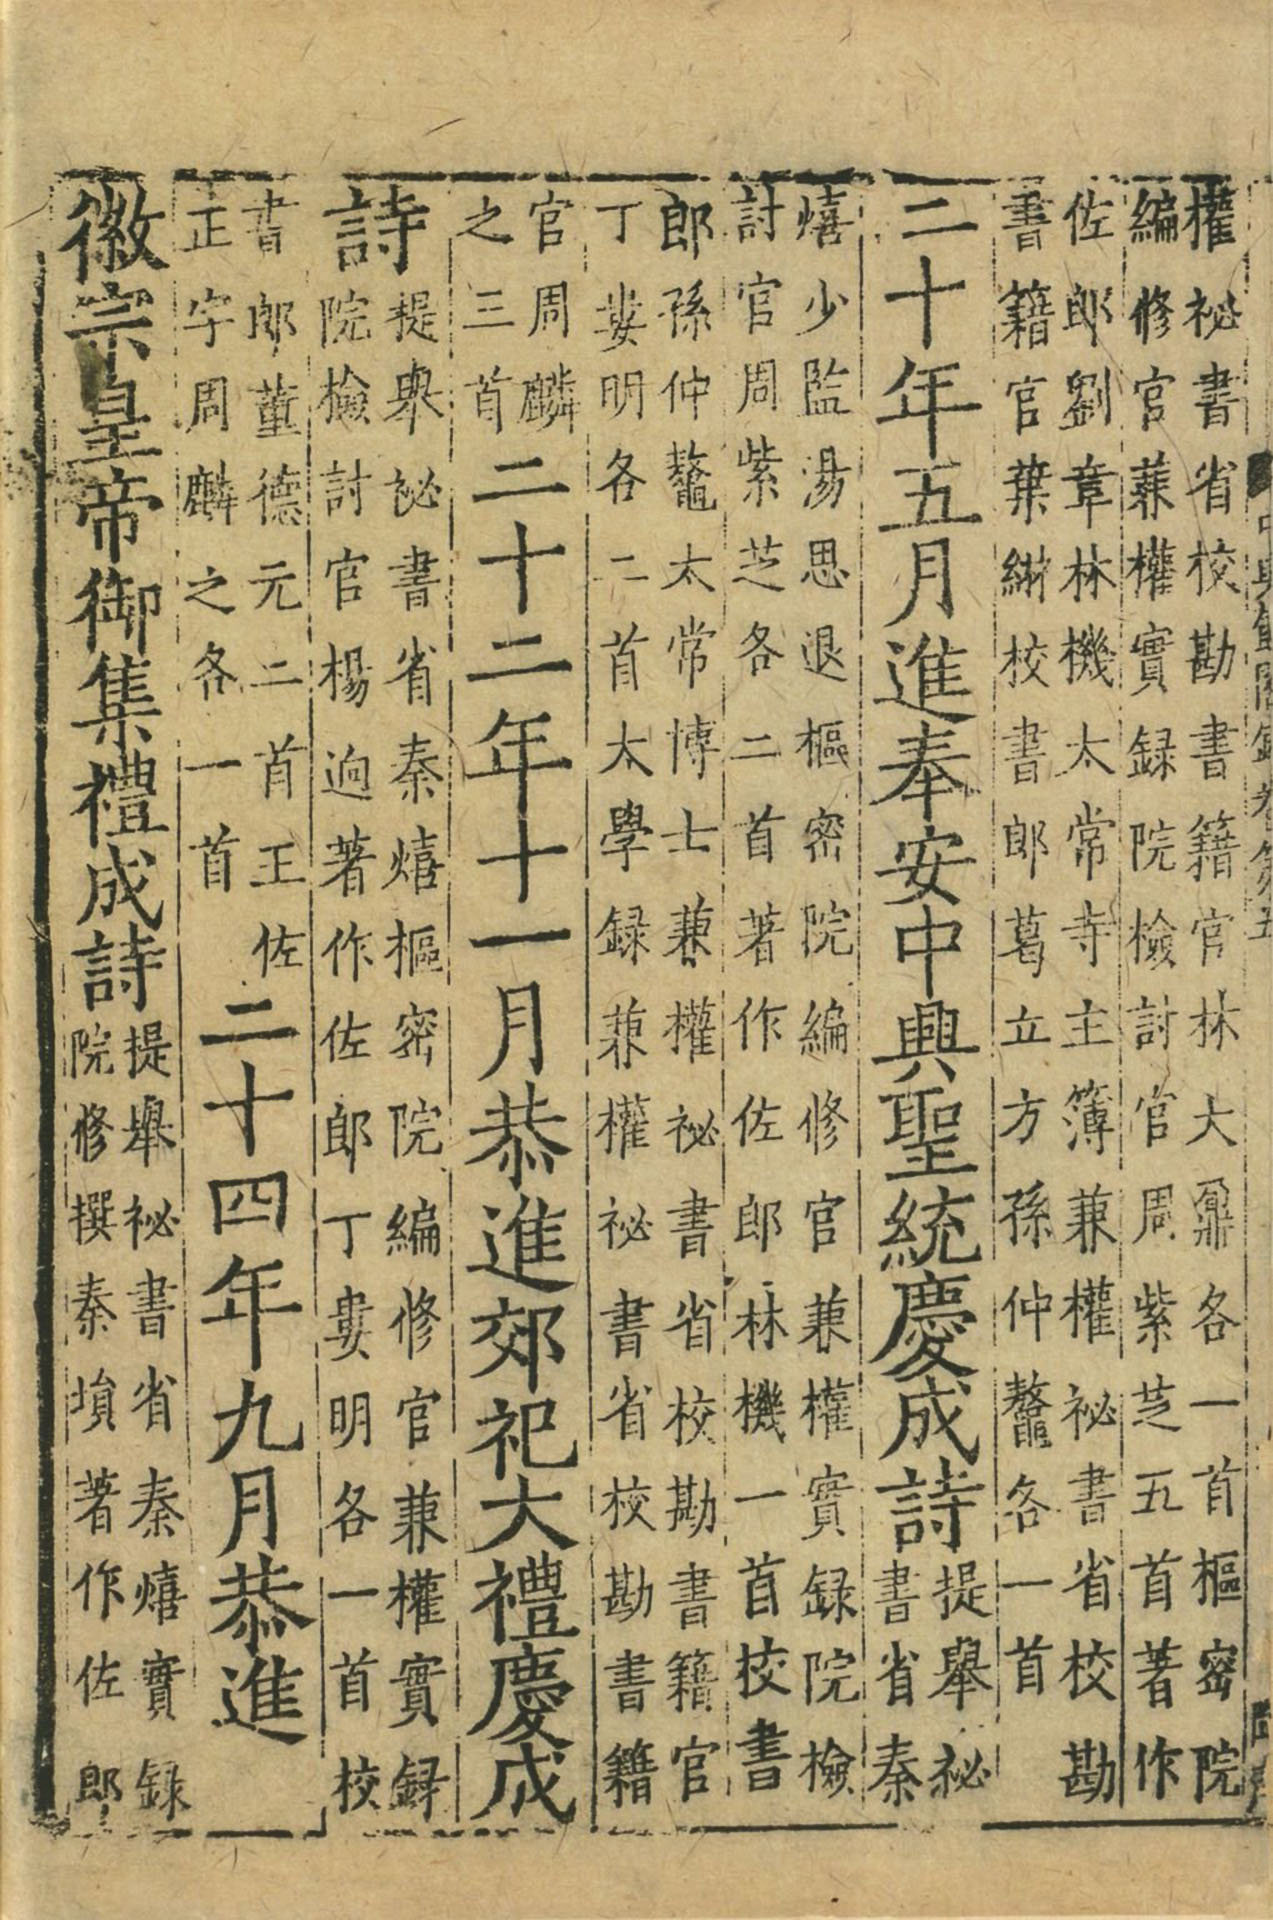 權祕書省校勘書籍官林大鼐各一首樞密院
編修官兼權實録院檢討官周紫芝五首著作
佐郎劉章林機太常寺主簿兼權祕書省校勘
書籍官葉綝校書郎葛立方孫仲鼇各一首
二十年五月進奉安中興聖統慶成詩
提舉祕
書省秦
熺少監湯思退樞密院編修官兼權實録院檢
討官周紫芝各二首著作佐郎林機一首校書
郎孫仲鼇太常博士兼權祕書省校勘書籍官
丁婁明各二首太學録兼權祕書省校勘書籍
官周麟
之三首
二十二年十一月恭進郊祀大禮慶成
詩
提舉祕書省秦熺樞密院編修官兼權實録
院檢討官楊迥著作佐郎丁婁明各一首校
書郎董德元二首王佐
正字周麟之各一首
二十四年九月恭進
徽宗皇帝御集禮成詩
提舉祕書省秦熺實録
院修撰秦塤著作佐郎